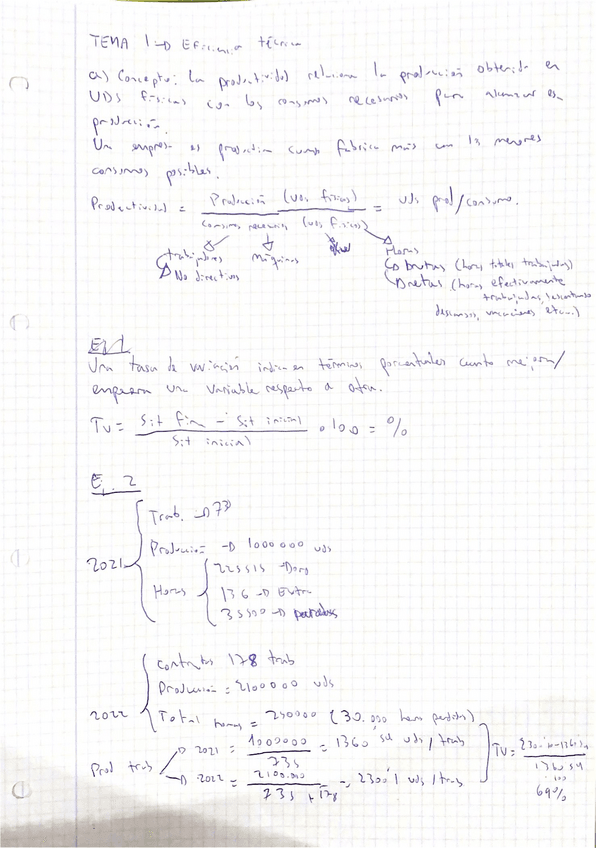 TEMA 1 → Eficiencia técnica
a) Concepto: La productividad relaciona la producción obtenida en
UDS físicas con los consumos necesarios para alcanzar esa
producción.
Una empresa es productiva cuando fabrica más con los menores
consumos posibles.
Productividad = Producción (uds físicas) / Consumos necesarios (uds físicas) = uds prod/consumo.
trabajadores
No directivos
Máquinas
Horas
brutas (horas totales trabajadas)
netas (horas efectivamente
trabajadas, descontando
descansos, vacaciones etc...)
Ej 1
Una tasa de variación indica en términos porcentuales cuanto mejora/
empeora una variable respecto a otra.
TV = Sit fin - Sit inicial / Sit inicial · 100 = %
Ej. 2
2021
Trab. → 735
Produccion → 1000000 uds
Horas
136 → Extra
35500 →
2022
contratos 178 trab
Produccion = 2100000 uds
Total horas = 250000 (30.000 horas perdidas)
Prod trab
→ 2021 = 1000000 / 735 = 1360'54 uds/trab
→ 2022 = 2100.000 / 735 + 178 = 2300'1 uds/trab
TV =
1360'54
· 100
69%